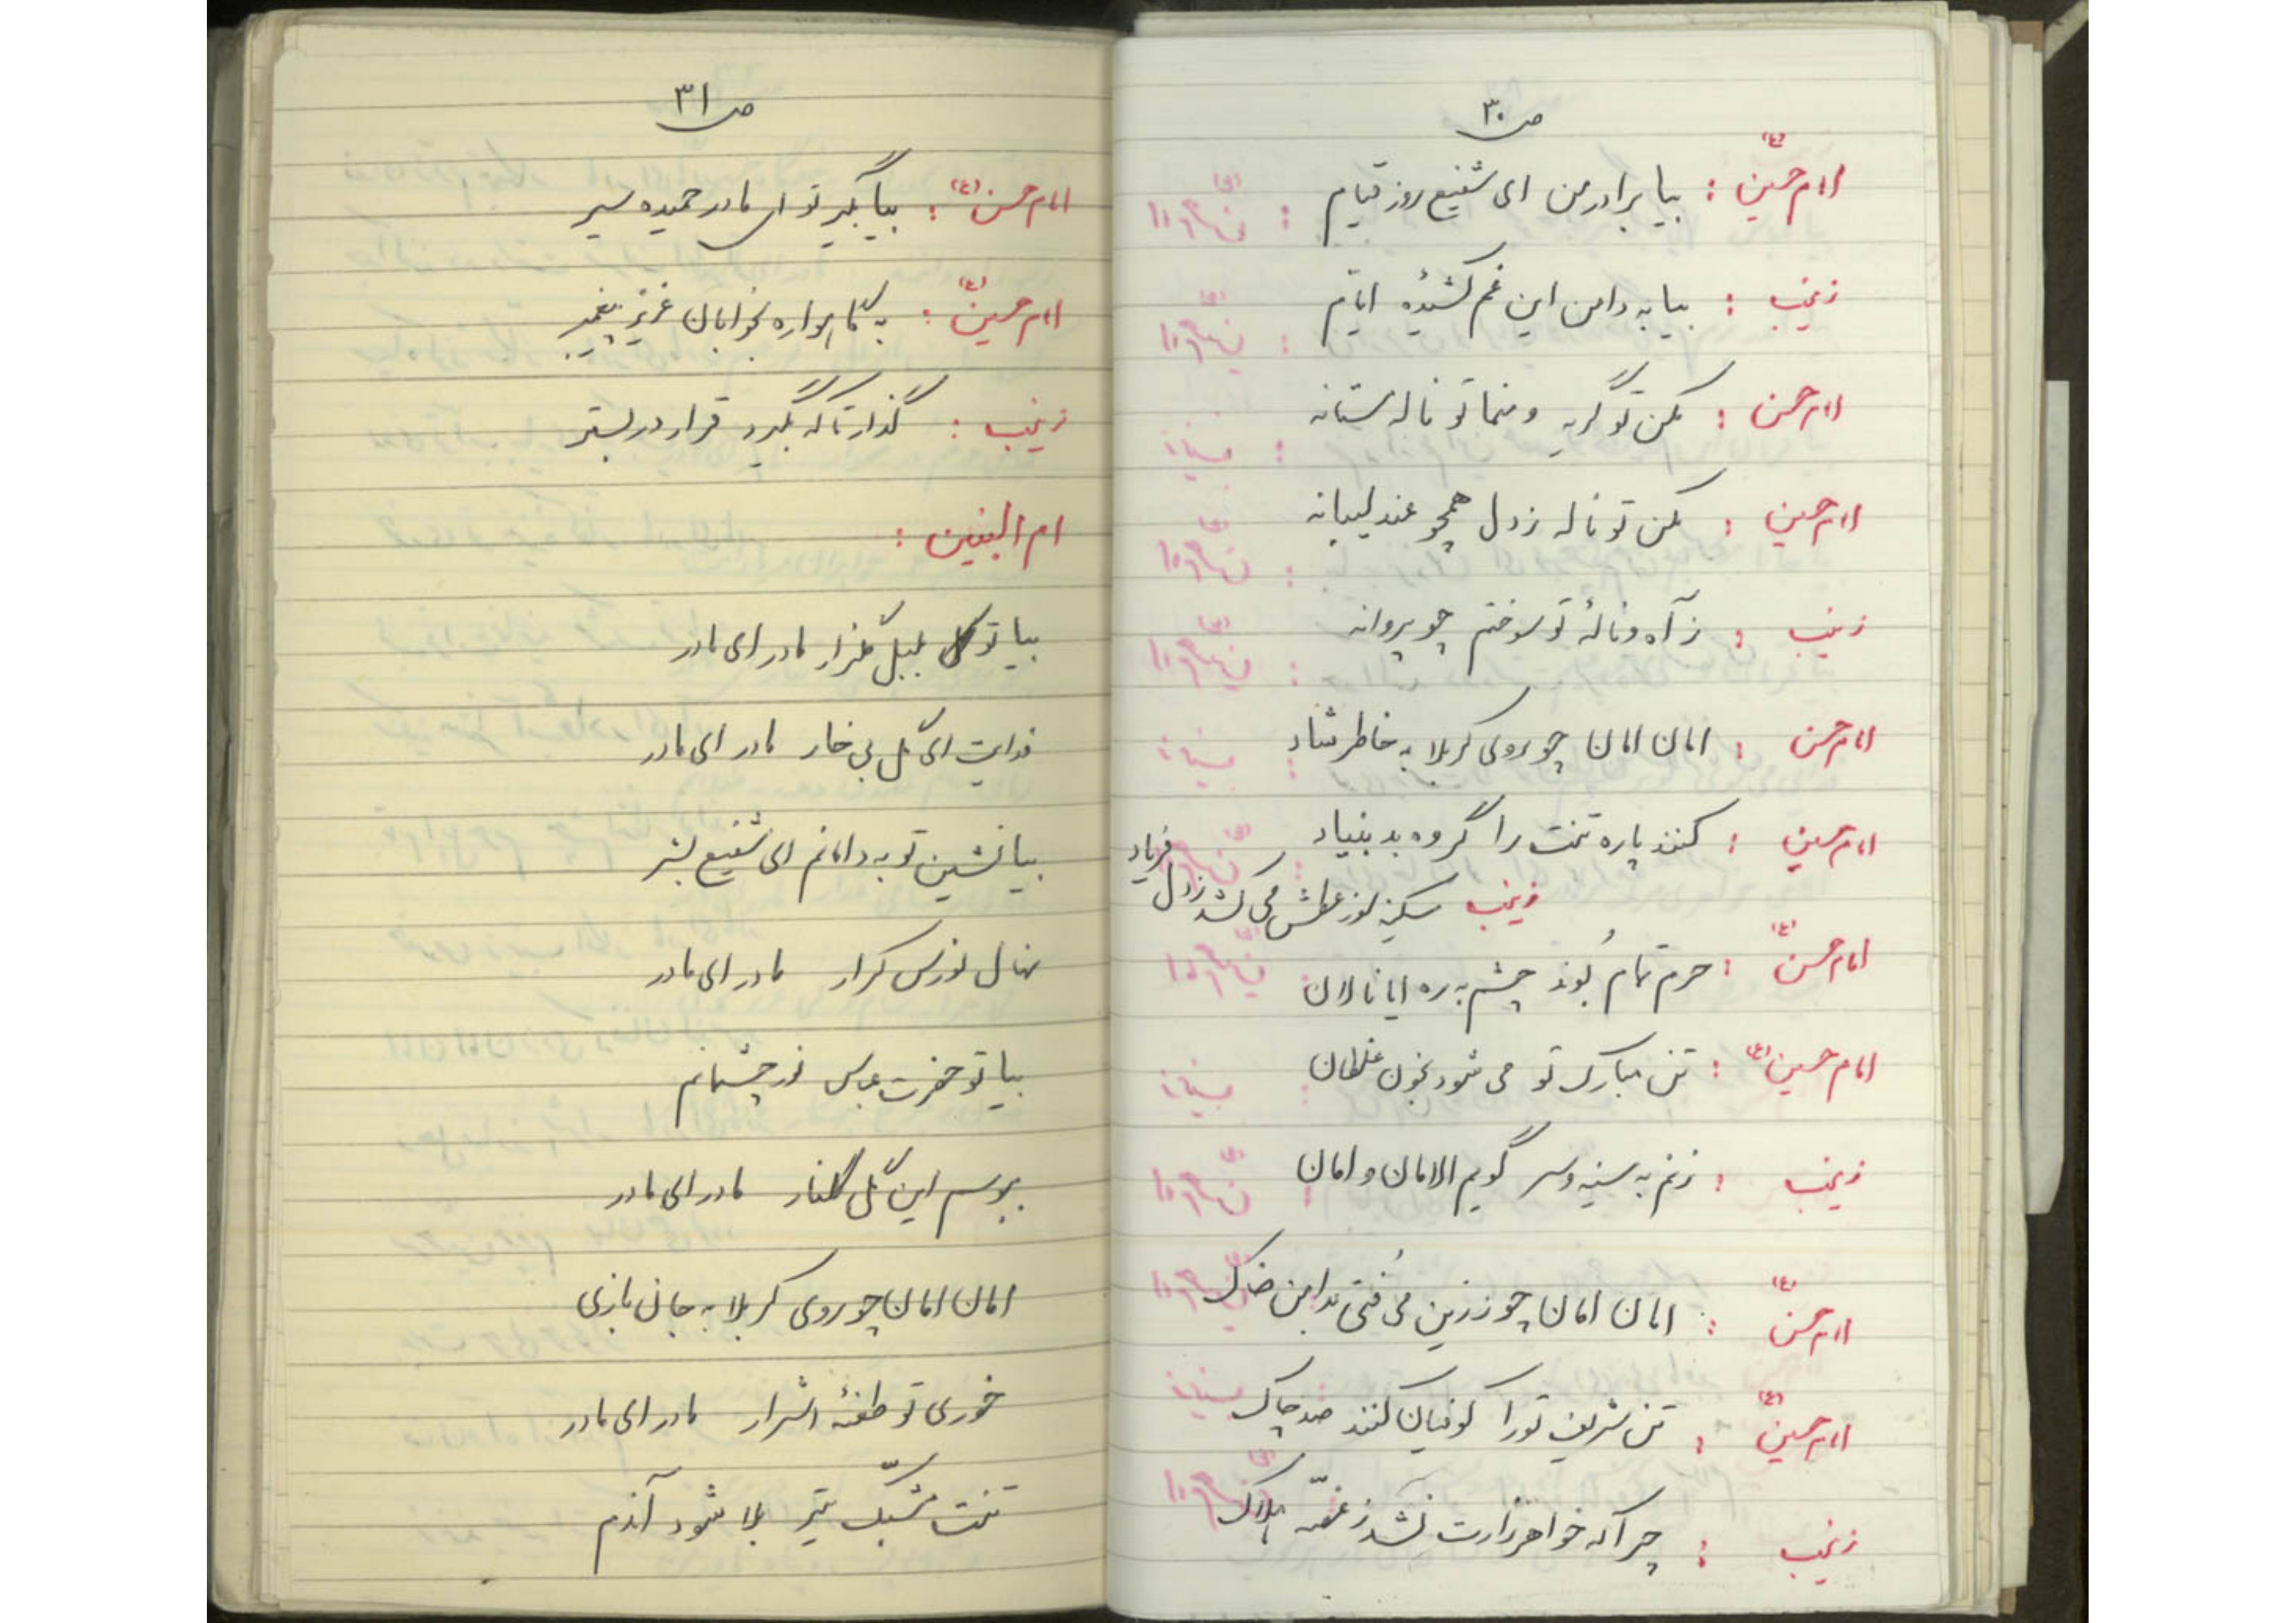 ص ۳۰
امام حسین (ع) : بیا برادر من ای شفیع روز قیام
زینب : بیا به دامن این غم کشیدهٔ ایام
امام حسن : مکن تو گریه و منما تو ناله مستانه
امام حسین : مکن تو ناله ز دل همچو عندلیبانه
زینب : ز آه و نالهٔ تو سوختم چو پروانه
امام حسن : امان امان چو روی کربلا به خاطر شاد
امام حسین : کنند پاره تنت را گروه بد بنیاد
زینب سکینه از عطش می کشد ز دل فریاد
امام حسن (ع) : حرم تمام بُوَند چشم به ره ایا نالان
امام حسین (ع) : تن مبارک تو می شود بخون غلطان
زینب : زنم به سینه و سر گویم الامان و امان
امام حسن (ع) : امان امان چو ز زین می فُتی بدامن خاک
امام حسین (ع) : تن شریف تو را کوفیان کنند صد چاک
زینب : چرا که خواهر زارت نشد ز غصّه هلاک
ص ۳۱
امام حسن (ع) : بیا بگیر تو ای مادر حمیده سیر
امام حسین (ع) : به گاهواره بخوابان عزیز پیغمبر
زینب : گذار تا که بگیرد قرار در بستر
ام البنین :
بیا تو بلبل گلزار مادر ای مادر
فدایت ای گل بی خار مادر ای مادر
بیا نشین تو به دامانم ای شفیع بشر
نهال نورس کرار مادر ای مادر
بیا تو حضرت عباس نور چشمانم
ببوسم این گل گلنار مادر ای مادر
امان امان چو روی کربلا به جان بازی
خوری تو طعنهٔ اشرار مادر ای مادر
تنت مشبّک تیر بلا شود آندم